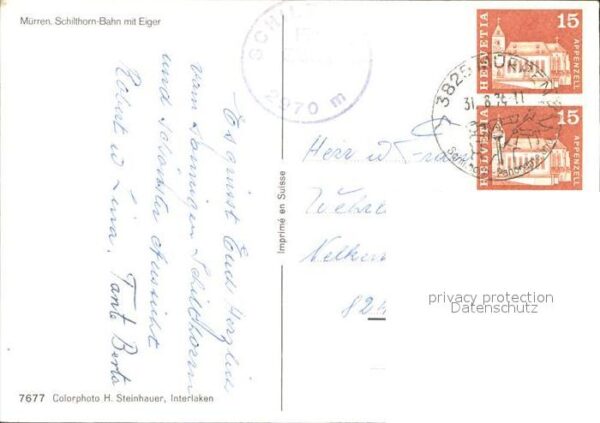 Mürren. Schilthorn-Bahn mit Eiger
SCHIL
2970 m
HELVETIA 15 APPENZELL
HELVETIA 15 APPENZELL
3825 MÜRREN
31. 8. 74-11
Es grüsst Euch Herzlich
vom sonnigen Schilthorn
und schönster Aussicht
Robert u Lina. Tante Berta
Imprimé en Suisse
Herr u Frau
Wehr
Nelken
82
privacy protection
Datenschutz
7677 Colorphoto H. Steinhauer, Interlaken